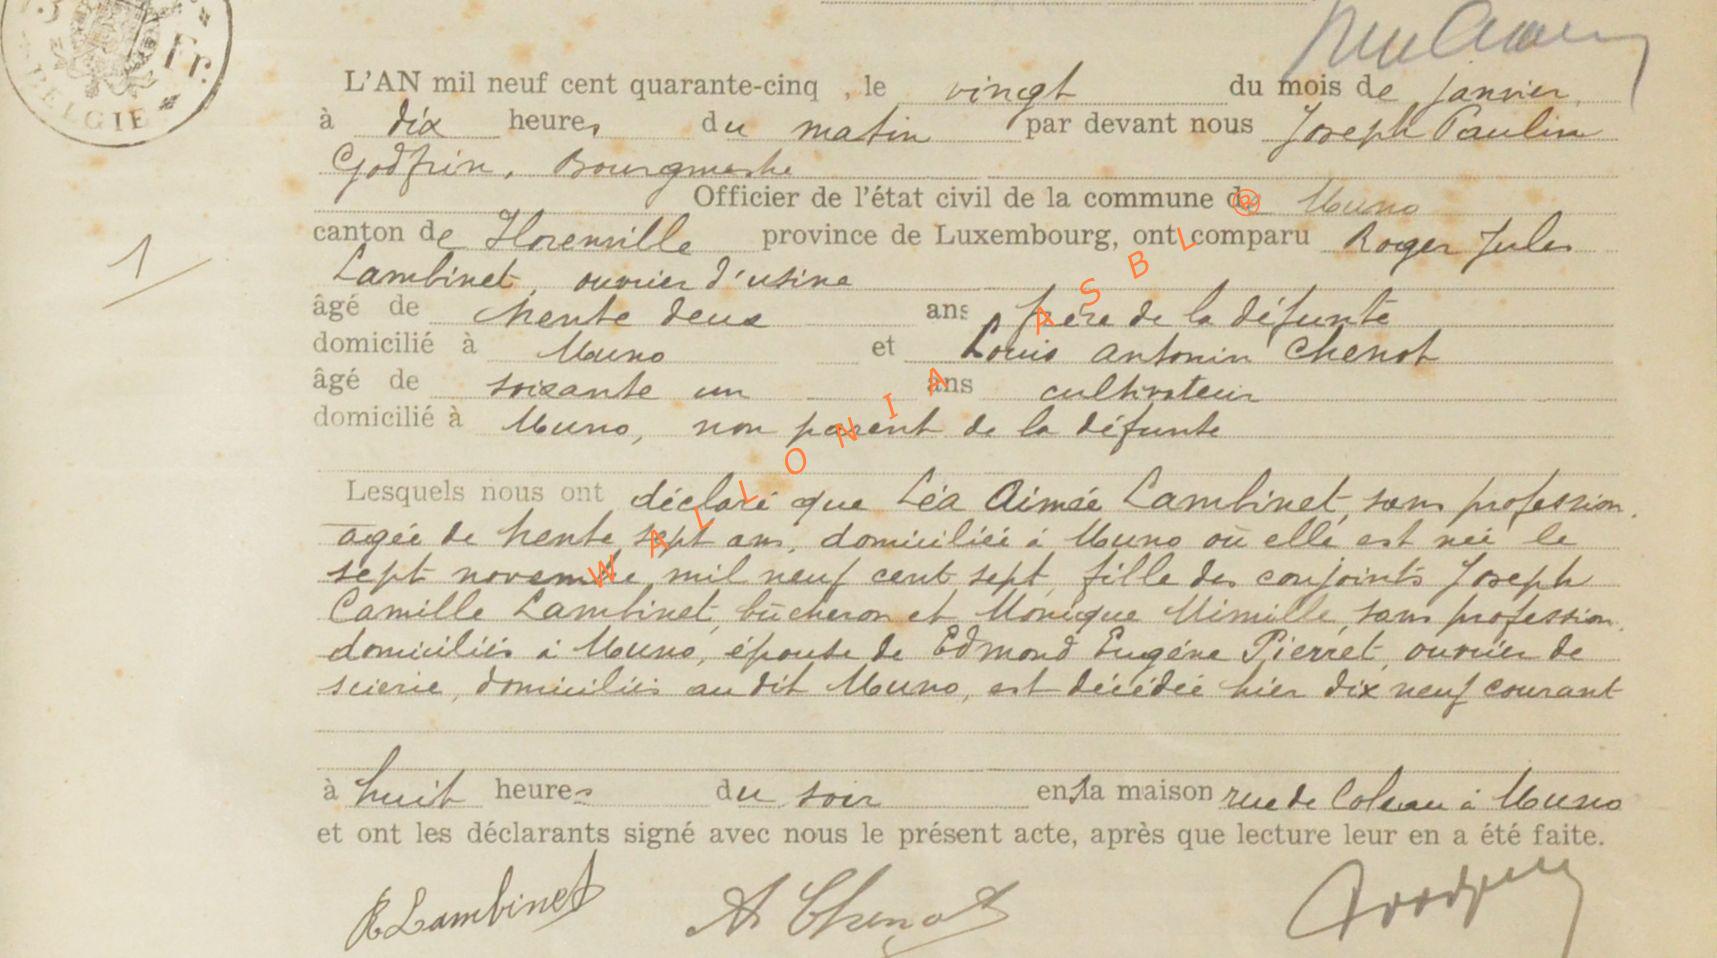 BELGIE
Fr.
L'AN mil neuf cent quarante-cinq , le vingt du mois de janvier
à dix heures du matin par devant nous Joseph Paulin
Godfrin, Bourgmestre
Officier de l'état civil de la commune de Muno
canton de Florenville province de Luxembourg, ont comparu Roger Jules
Lambinet, ouvrier d'usine
âgé de trente deux ans frère de la défunte
domicilié à Muno et Louis Antonin Chenot
âgé de soixante un ans cultivateur
domicilié à Muno, non parent de la défunte
1
Lesquels nous ont déclaré que Léa Aimée Lambinet, sans profession,
agée de trente sept ans, domiciliée à Muno où elle est née le
sept novembre mil neuf cent sept, fille des conjoints Joseph
Camille Lambinet, bûcheron et Monique Mimille, sans profession,
domiciliés à Muno, épouse de Edmond Eugène Pierret, ouvrier de
scierie, domiciliés au dit Muno, est décédée hier dix neuf courant
à huit heures du soir en la maison rue de à Muno
et ont les déclarants signé avec nous le présent acte, après que lecture leur en a été faite.
R Lambinet A Chenot
WALLONIA ASBL ®